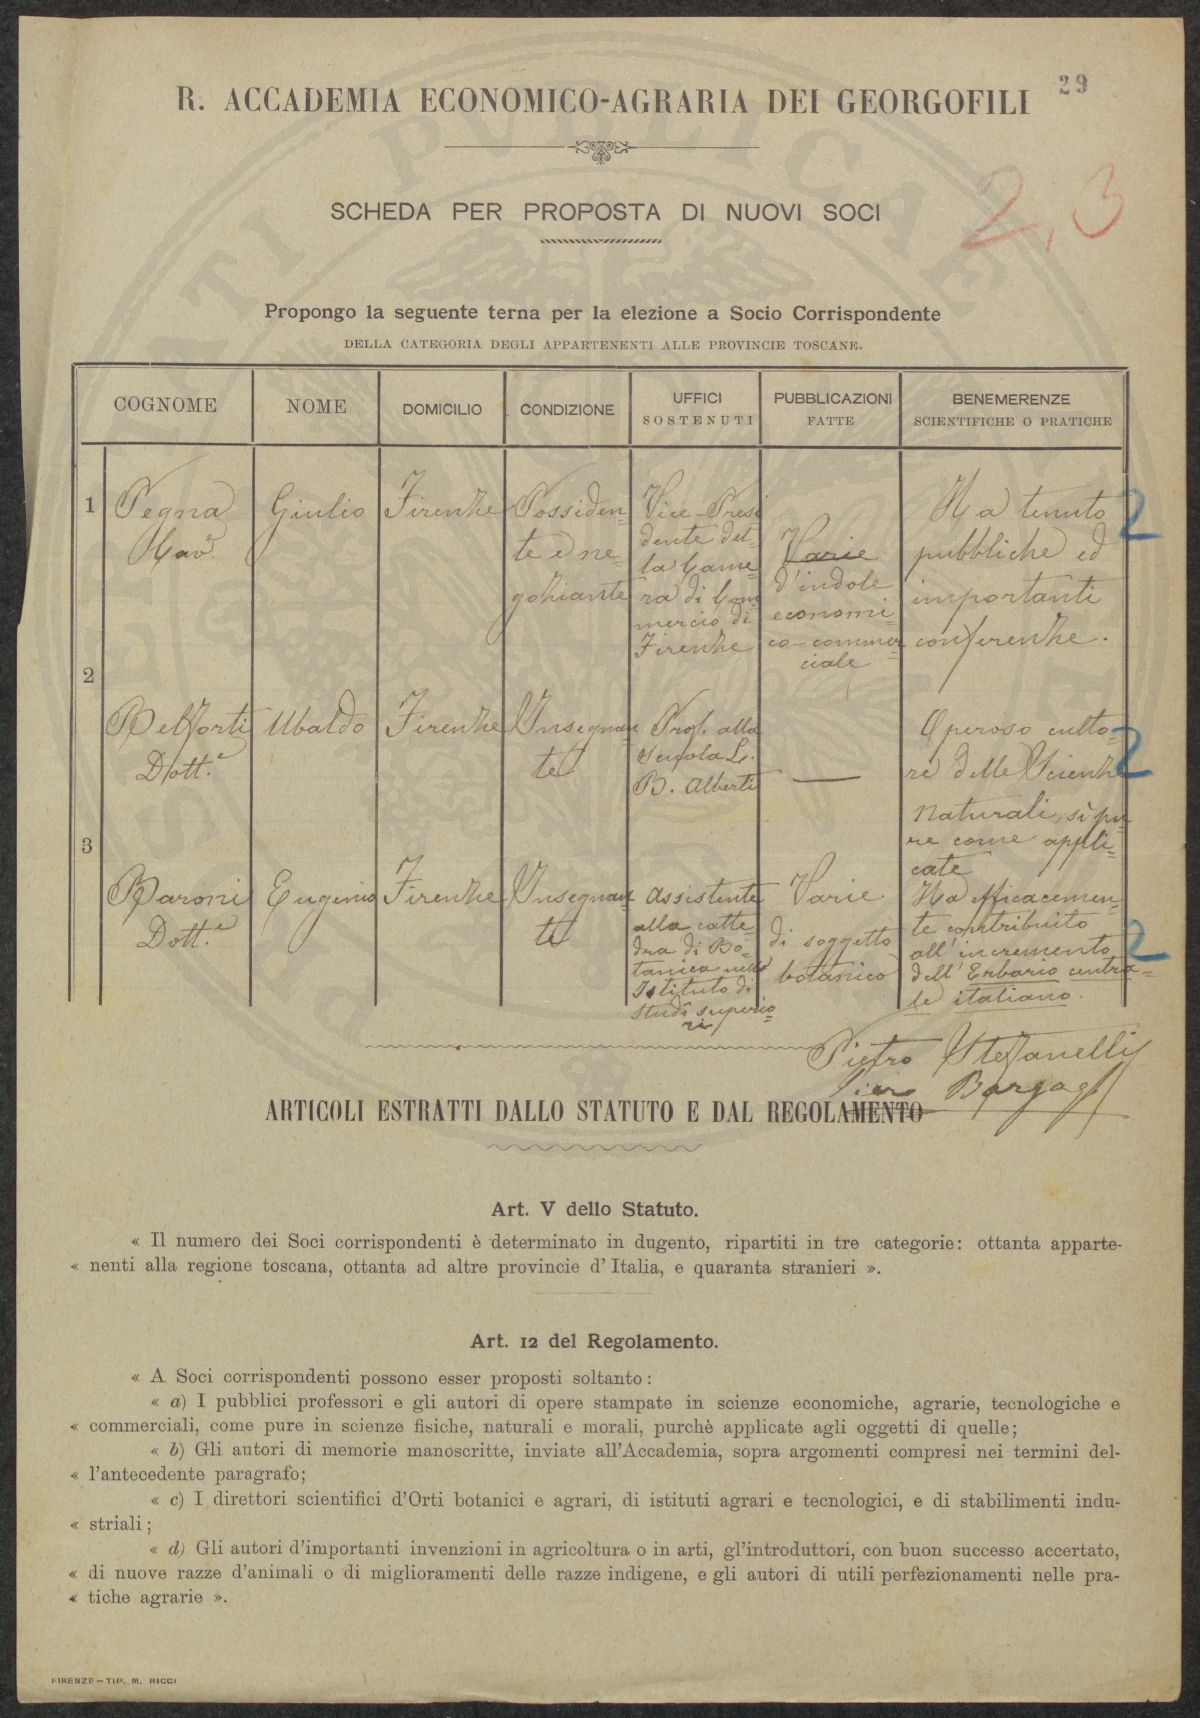 29
R. ACCADEMIA ECONOMICO-AGRARIA DEI GEORGOFILI
2,3
SCHEDA PER PROPOSTA DI NUOVI SOCI
Propongo la seguente terna per la elezione a Socio Corrispondente
DELLA CATEGORIA DEGLI APPARTENENTI ALLE PROVINCIE TOSCANE.
COGNOME
NOME
DOMICILIO
CONDIZIONE
UFFICI
SOSTENUTI
PUBBLICAZIONI
FATTE
BENEMERENZE
SCIENTIFICHE O PRATICHE
1
Pegna
Cav.
Giulio
Firenze
Possiden-
te e ne-
goziante
Vice-Presi
dente del-
la Came-
ra di Com
mercio di
Firenze
Varie
d'indole
economi-
co-commer-
ciale
Ha tenuto
pubbliche ed
importanti
conferenze.
2
2
Belforti
Dott.e
Ubaldo
Firenze
Insegnan
te
Prof. alla
Scuola L.
B. Alberti
—
Operoso culto-
re delle Scienze
Naturali, sì pu-
re come appli-
cate
2
3
Baroni
Dott.e
Eugenio
Firenze
Insegnan
te
Assistente
alla catte-
dra di Bo-
tanica nell'
Istituto di
Studi superio-
ri
Varie
di soggetto
botanico
Ha efficacemen-
te contribuito
all'incremento
dell'Erbario centra-
le italiano.
2
Pietro Stefanelli
Pier Bargagli
ARTICOLI ESTRATTI DALLO STATUTO E DAL REGOLAMENTO
Art. V dello Statuto.
« Il numero dei Soci corrispondenti è determinato in dugento, ripartiti in tre categorie: ottanta apparte-
« nenti alla regione toscana, ottanta ad altre provincie d'Italia, e quaranta stranieri ».
Art. 12 del Regolamento.
« A Soci corrispondenti possono esser proposti soltanto:
« a) I pubblici professori e gli autori di opere stampate in scienze economiche, agrarie, tecnologiche e
« commerciali, come pure in scienze fisiche, naturali e morali, purchè applicate agli oggetti di quelle;
« b) Gli autori di memorie manoscritte, inviate all'Accademia, sopra argomenti compresi nei termini del-
« l'antecedente paragrafo;
« c) I direttori scientifici d'Orti botanici e agrari, di istituti agrari e tecnologici, e di stabilimenti indu-
« striali;
« d) Gli autori d'importanti invenzioni in agricoltura o in arti, gl'introduttori, con buon successo accertato,
« di nuove razze d'animali o di miglioramenti delle razze indigene, e gli autori di utili perfezionamenti nelle pra-
« tiche agrarie ».
FIRENZE—TIP. M. RICCI